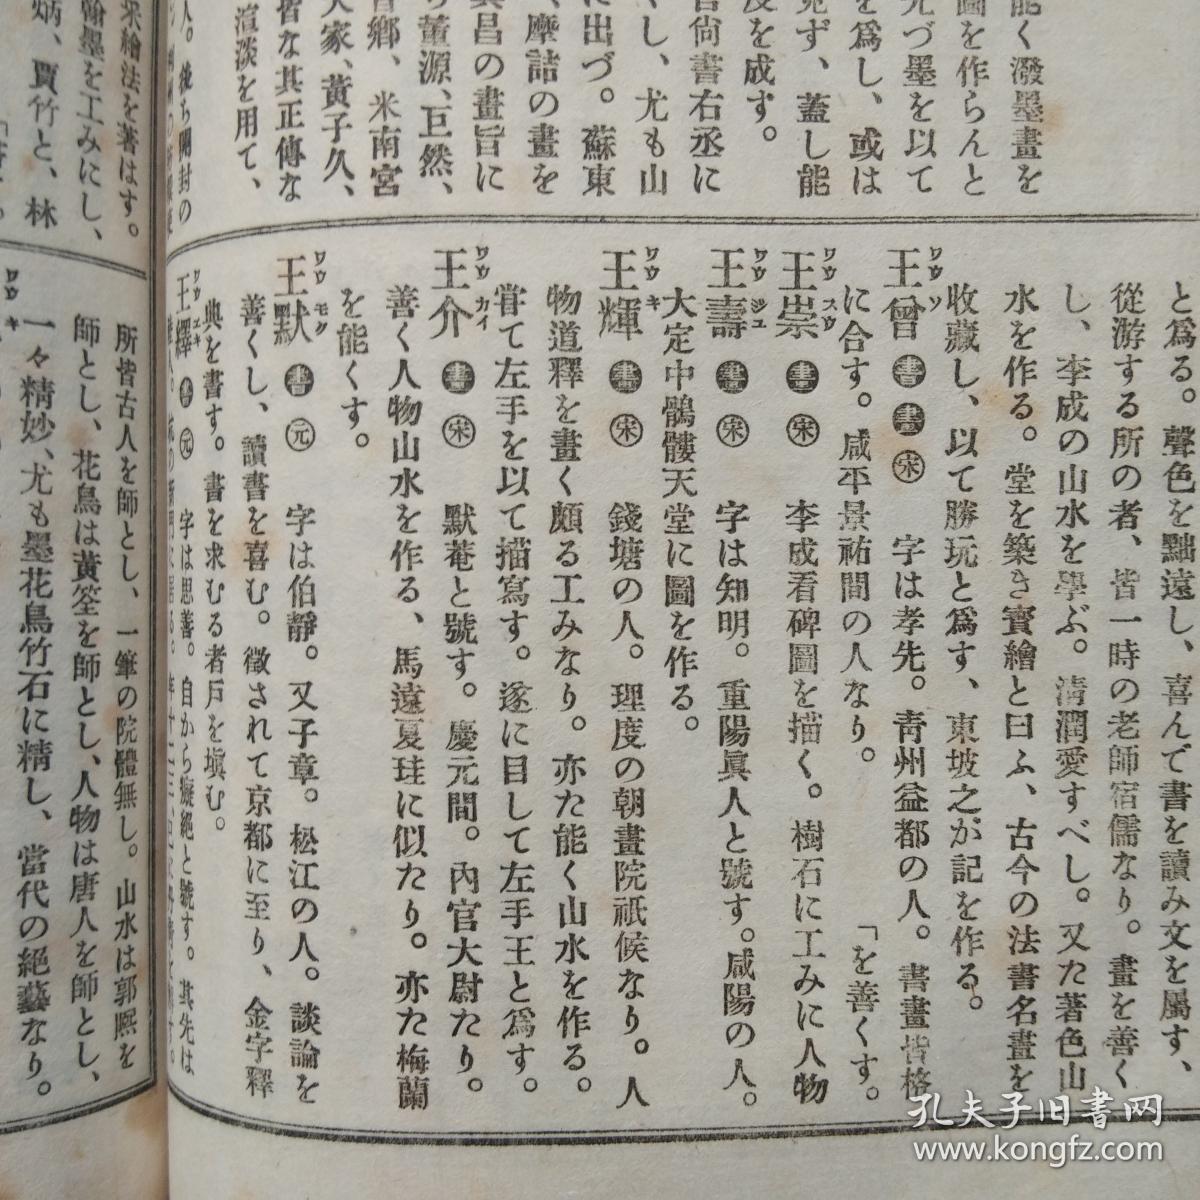 能く潑墨畫を
圖を作らんと
先づ墨を以て
を爲し、或は
免ず、蓋し能
度を成す。
官尙書右丞に
くし、尤も山
に出づ。蘇東
、摩詰の畫を
其昌の畫旨に
ら董源、巨然、
香鄉、米南宮
大家、黃子久、
皆な其正傳な
渲淡を用て、
人。後ち開封の
と爲る。聲色を黜遠し、喜んで書を讀み文を屬す、
從游する所の者、皆一時の老師宿儒なり。畫を善く
し、李成の山水を學ぶ。淸潤愛すべし。又た著色山
水を作る。堂を築き寶繪と曰ふ、古今の法書名畫を
收藏し、以て勝玩と爲す、東坡之が記を作る。
王曾 ワウソ 書 畫 宋 字は孝先。靑州益都の人。書畫皆格
に合す。咸平景祐間の人なり。 「を善くす。
王崇 ワウスウ 畫 宋 李成看碑圖を描く。樹石に工みに人物
王壽 ワウジユ 畫 宋 字は知明。重陽眞人と號す。咸陽の人。
大定中鶻髏天堂に圖を作る。
王輝 ワウキ 畫 宋 錢塘の人。理度の朝畫院祇候なり。人
物道釋を畫く頗る工みなり。亦た能く山水を作る。
甞て左手を以て描寫す。遂に目して左手王と爲す。
王介 ワウカイ 畫 宋 默菴と號す。慶元間。內官大尉たり。
善く人物山水を作る、馬遠夏珪に似たり。亦た梅蘭
を能くす。
王默 ワウモク 書 元 字は伯靜。又子章。松江の人。談論を
善くし、讀書を喜む。徵されて京都に至り、金字釋
典を書す。書を求むる者戶を塡む。
王繹 ワウエキ 畫 元 字は思善。自から癡絕と號す。其先は
米繪法を著はす。
翰墨を工みにし、
炳、賈竹と、林
所皆古人を師とし、一筆の院體無し。山水は郭熙を
師とし、花鳥は黃筌を師とし、人物は唐人を師とし、
一々精妙、尤も墨花鳥竹石に精し、當代の絕藝なり。
ワウ キ
孔夫子旧书网
www.kongfz.com